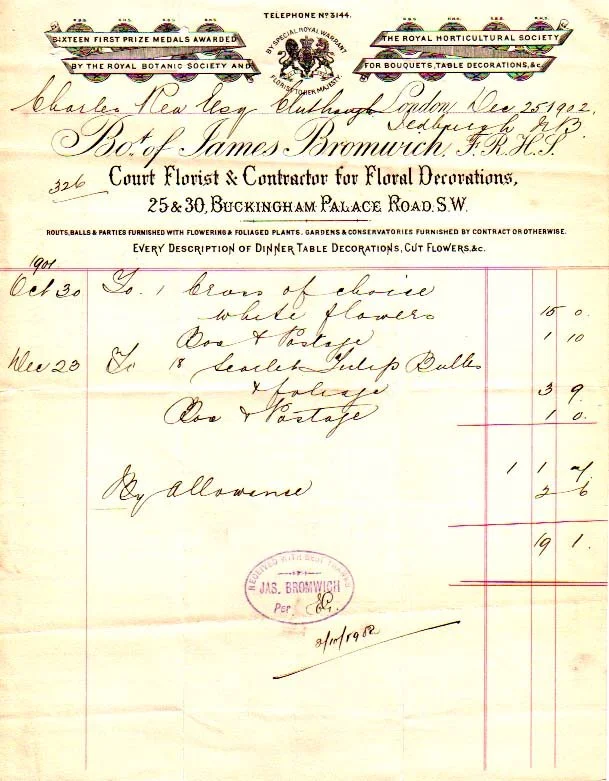 TELEPHONE Nº 3144.
SIXTEEN FIRST PRIZE MEDALS AWARDED
BY THE ROYAL BOTANIC SOCIETY AND
BY SPECIAL ROYAL WARRANT
FLORIST TO HER MAJESTY.
THE ROYAL HORTICULTURAL SOCIETY
FOR BOUQUETS, TABLE DECORATIONS, &c.
Charles Rea Esq London Dec 25 1902.
N.B.
Bot. of James Bromwich, F.R.H.S.
326
Court Florist & Contractor for Floral Decorations,
25 & 30, BUCKINGHAM PALACE ROAD. S.W.
ROUTS, BALLS & PARTIES FURNISHED WITH FLOWERING & FOLIAGED PLANTS. GARDENS & CONSERVATORIES FURNISHED BY CONTRACT OR OTHERWISE.
EVERY DESCRIPTION OF DINNER TABLE DECORATIONS, CUT FLOWERS, &c.
1901
Oct 30 To 1 Cross of choise
white flowers 15 0.
Box & Postage 1 10
Dec 23 To 18 Scarlet Tulip Bulbs
& foliage 3 9.
Box & Postage 1 0.
1 1 7
By Allowanse 2 6
19 1.
RECEIVED WITH BEST THANKS
JAS. BROMWICH
Per